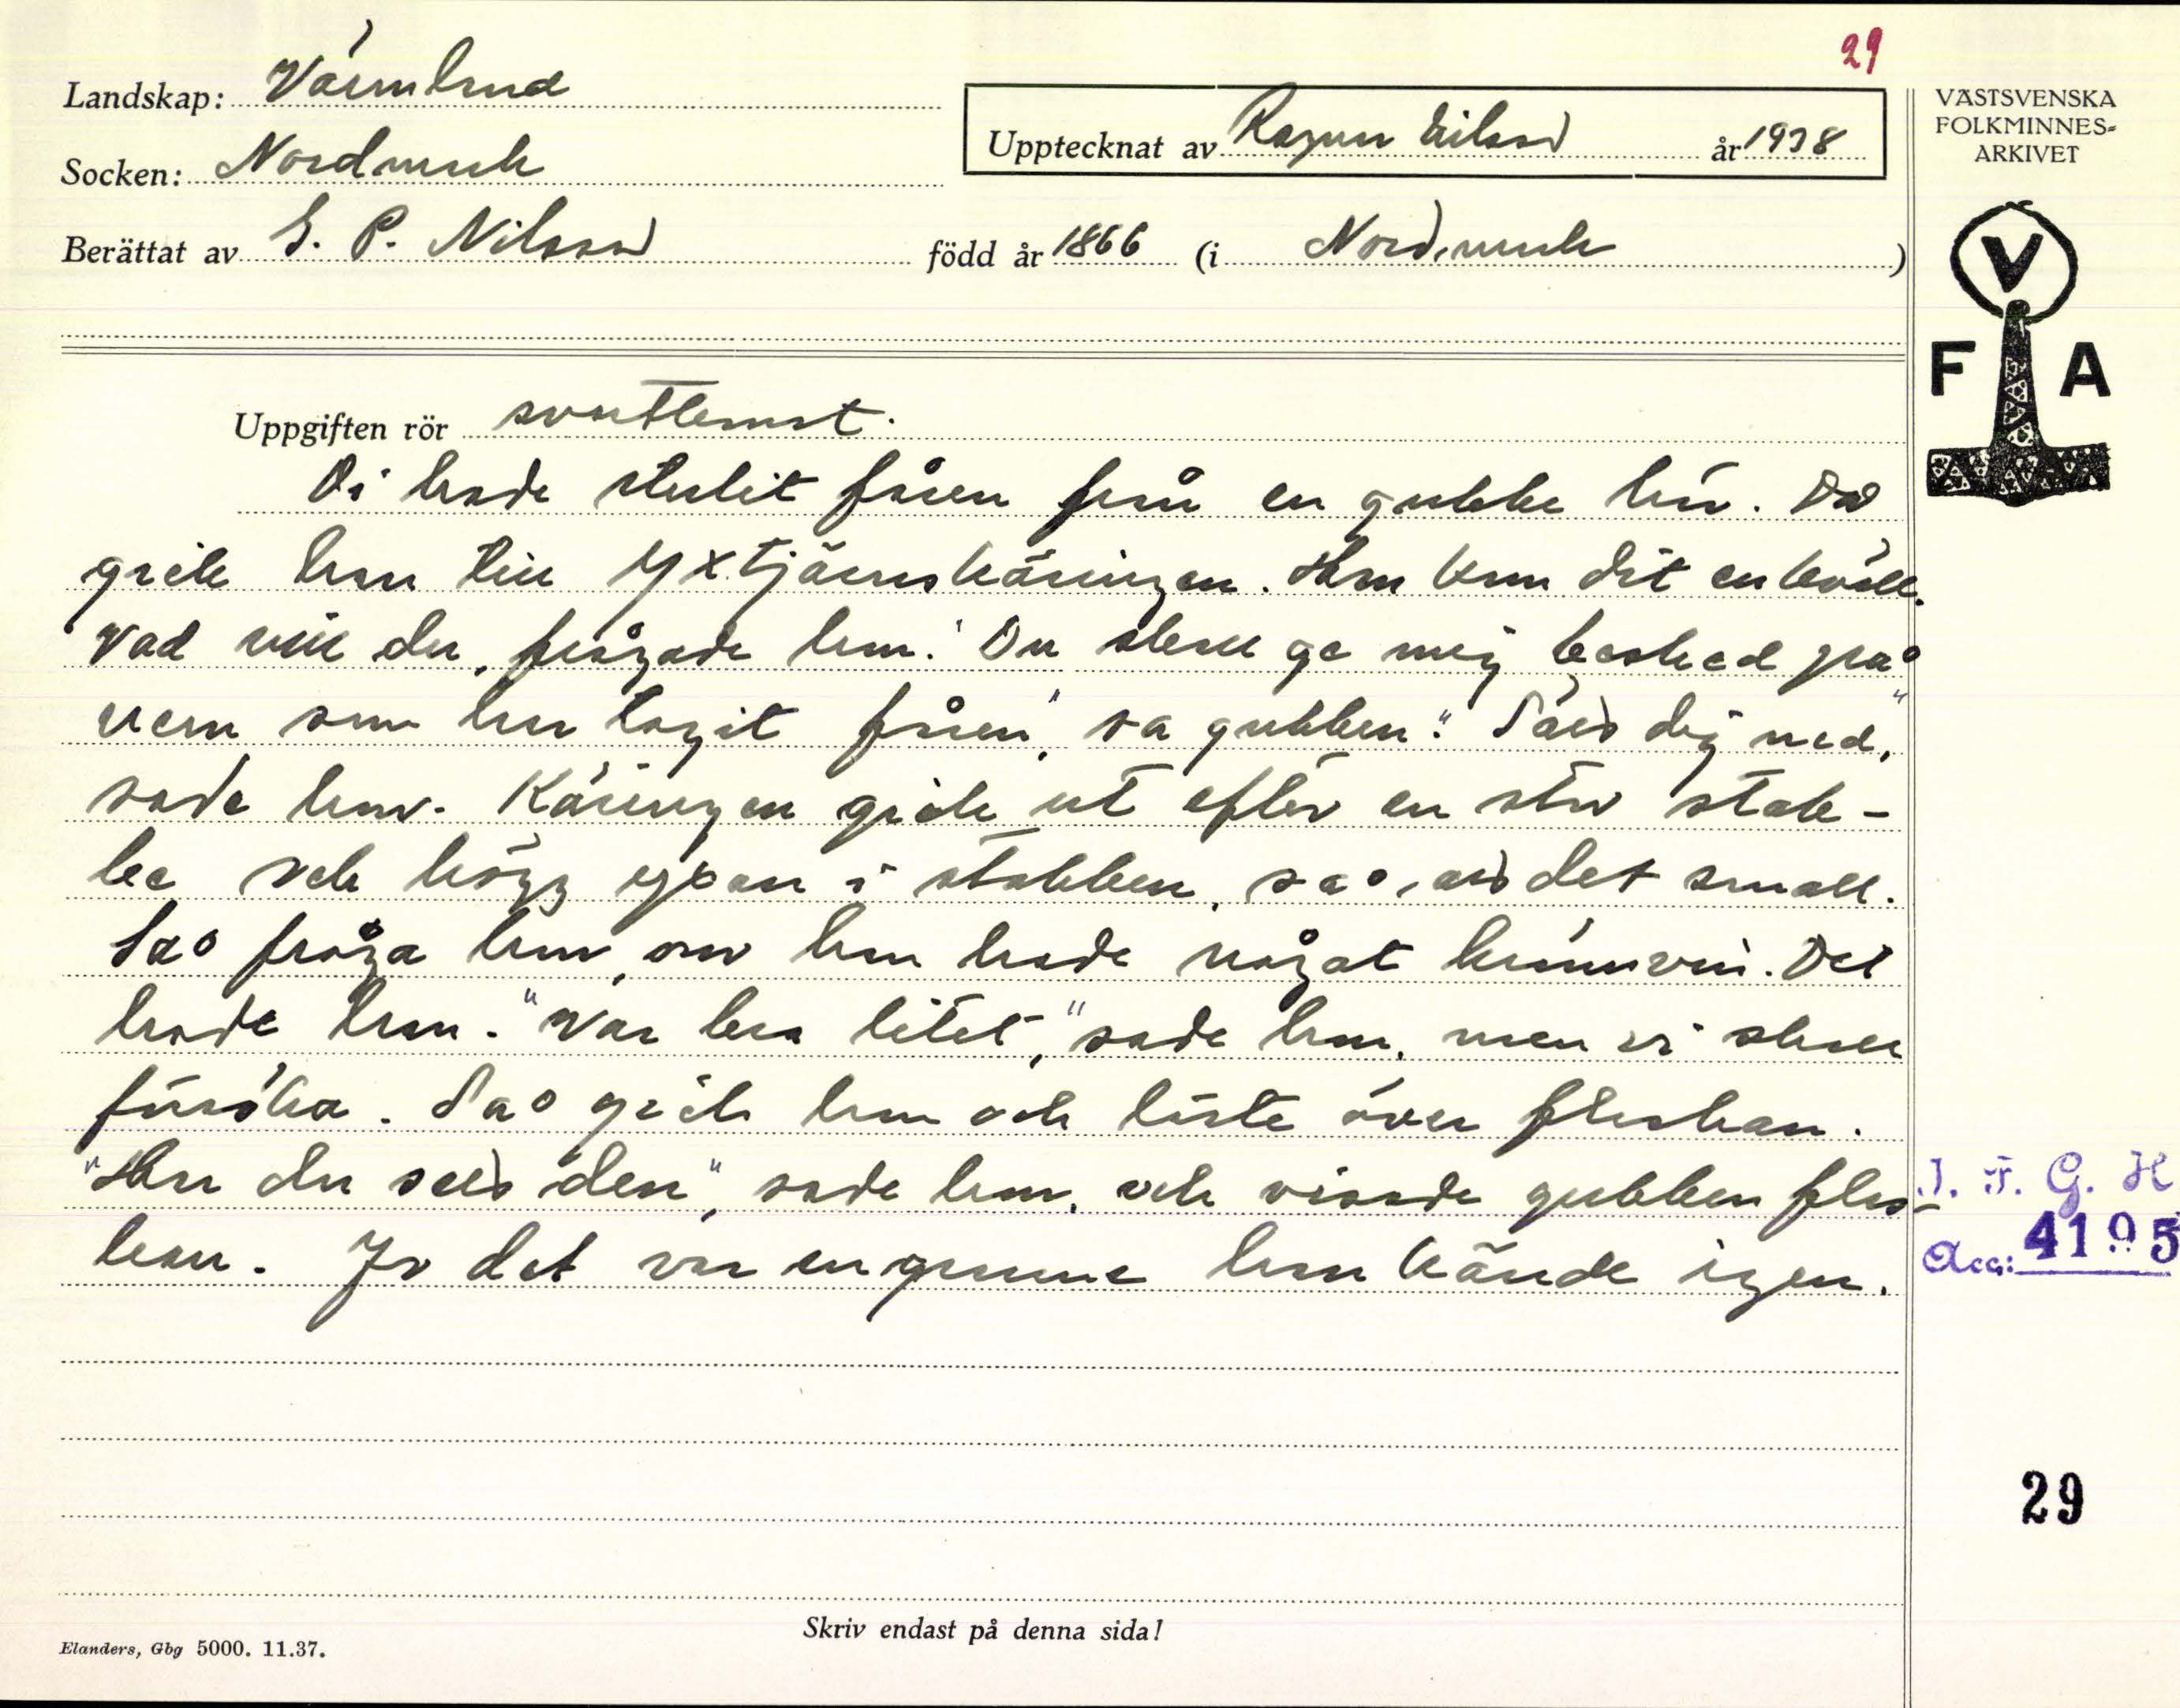 29
Landskap: Värmland
Upptecknat av Ragnar Nilsson år 1938
Socken: Nordmark
Berättat av S. P. Nilsson född år 1866 (i Nordmark)
VÄSTSVENSKA
FOLKMINNES-
ARKIVET
V
F A
Uppgiften rör svartkonst.
Di hade stulit fåren från en gubbe här. Då
gick han till Yxtjärnskäringen. Han kom dit en kväll.
Vad vill du, frågade hon. Du skall ge mig besked på
vem som har tagit fåren", sa gubben. "Sätt dig ned,"
sade hon. Käringen gick ut efter en stor stab-
be och högg yxan i stabben, så att det small.
Så fråga hon, om han hade något brännvin. Det
hade han. "Var bra litet," sade hon, men vi skall
försöka. Så gick hon och läste över flaskan.
"Har du sett den", sade hon, och visade gubben flas-
kan. Jo det var en granne han kände igen.
I. F. G. H
Acc: 4195
29
Skriv endast på denna sida!
Elanders, Gbg 5000. 11.37.